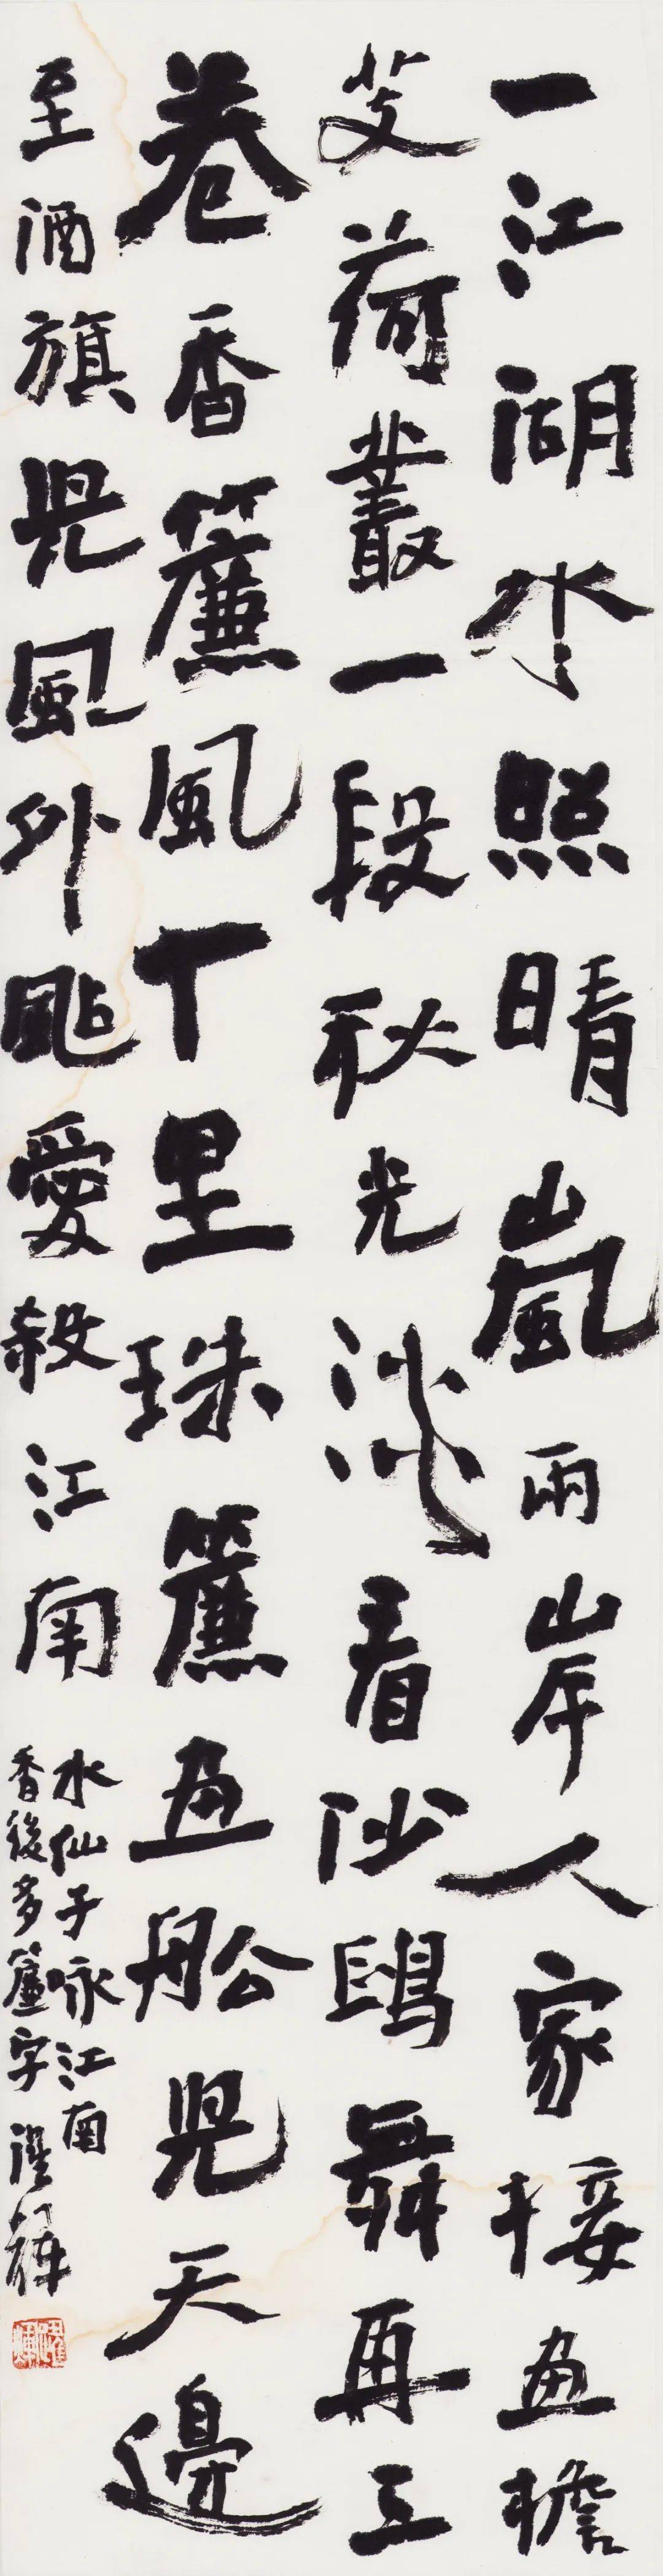 一江湖水照晴嵐兩岸人家接画檐
芰荷叢一段秋光淡看沙鷗舞再三
卷香簾風十里珠簾画船兒天邊
至酒旗兒風外颭愛殺江南
水仙子咏江南
香後多簾字